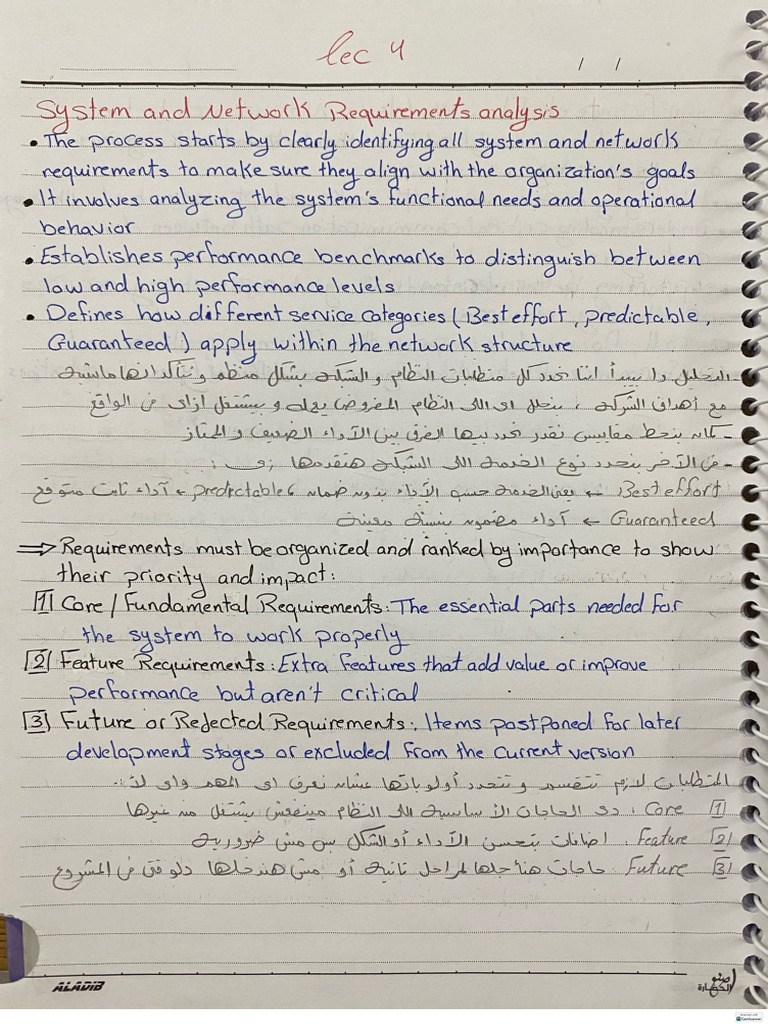 lec 4
/ /
System and Network Requirements analysis
• The process starts by clearly identifying all system and network
requirements to make sure they align with the organization's goals
• It involves analyzing the system's functional needs and operational
behavior
• Establishes performance benchmarks to distinguish between
low and high performance levels
• Defines how different service categories (Best effort, predictable,
Guaranteed) apply within the network structure
- التحليل دا يبدأ اننا نحدد كل متطلبات النظام و الشبكة بشكل منظم و نتأكد انها ماشية
مع أهداف الشركة ، بنحلل اى اللى النظام المفروض يعمله و بيشتغل ازاى فى الواقع
- كمان بنحط مقاييس نقدر نحدد بيها الفرق بين الآداء الضعيف و الممتاز
- فى الآخر بنحدد نوع الخدمة اللى الشبكة هتقدمها زى :
Best effort ← يعنى الخدمة حسب الآداء بدون ضمان ، predictable ← آداء ثابت متوقع
Guaranteed ← آداء مضمون بنسبة معينة
⇒ Requirements must be organized and ranked by importance to show
their priority and impact:
1 Core / Fundamental Requirements: The essential parts needed for
the system to work properly
2 Feature Requirements: Extra features that add value or improve
performance but aren't critical
3 Future or Rejected Requirements: Items postponed for later
development stages or excluded from the current version
المتطلبات لازم تتقسم و تتحدد أولوياتها عشان نعرف اى المهم واى لا:
1 Core : دى الحاجات الأساسية اللى النظام مينفعش يشتغل من غيرها
2 Feature : اضافات بتحسن الآداء أو الشكل بس مش ضرورية
3 Future : حاجات هنأجلها لمراحل تانية أو مش هندخلها دلوقتى فى المشروع
ALADIB